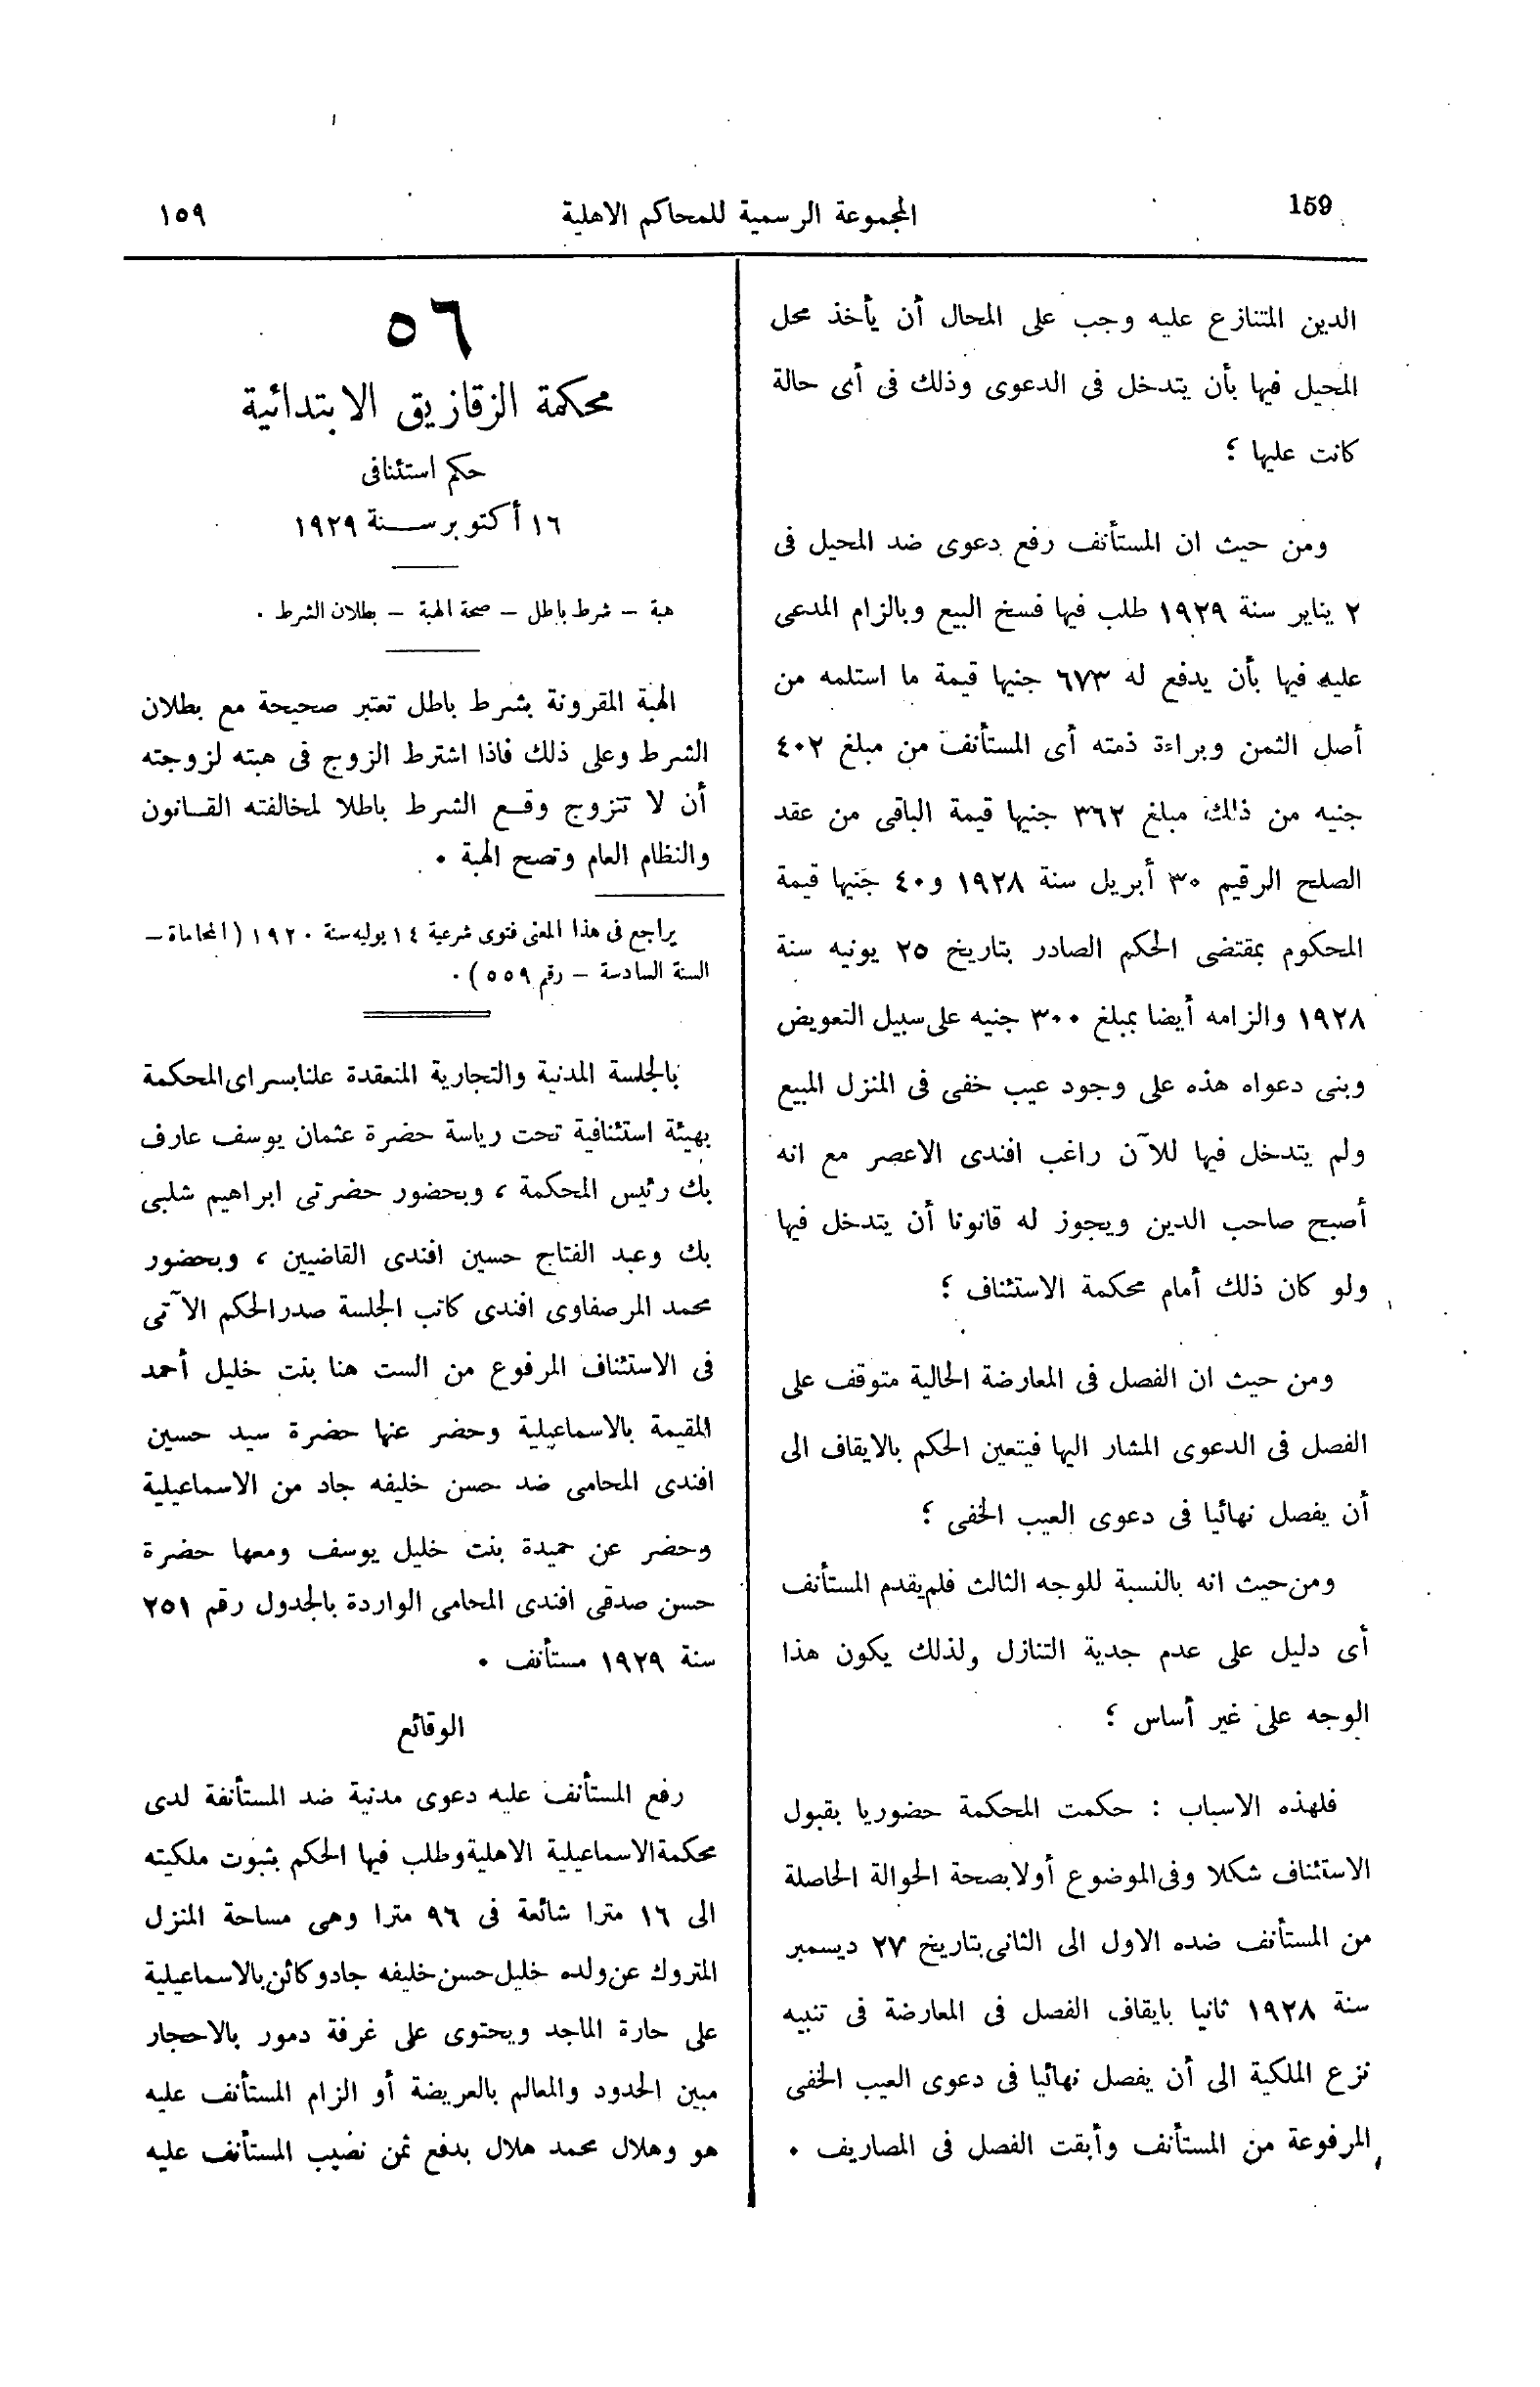 159
المجموعة الرسمية للمحاكم الاهلية
١٥٩
الدين المتنازع عليه وجب على المحال أن يأخذ محل
المحيل فيها بأن يتدخل فى الدعوى وذلك فى أى حالة
كانت عليها ؛
ومن حيث ان المستأنف رفع دعوى ضد المحيل فى
٢ يناير سنة ١٩٢٩ طلب فيها فسخ البيع وبالزام المدعى
عليه فيها بأن يدفع له ٦٧٣ جنيها قيمة ما استلمه من
أصل الثمن وبراءة ذمته أى المستأنف من مبلغ ٤٠٢
جنيه من ذلك مبلغ ٣٦٢ جنيها قيمة الباقى من عقد
الصلح الرقيم ٣٠ أبريل سنة ١٩٢٨ و٤٠ جنيها قيمة
المحكوم بمقتضى الحكم الصادر بتاريخ ٢٥ يونيه سنة
١٩٢٨ والزامه أيضا بمبلغ ٣٠٠ جنيه على سبيل التعويض
وبنى دعواه هذه على وجود عيب خفى فى المنزل المبيع
ولم يتدخل فيها للآن راغب افندى الاعصر مع انه
أصبح صاحب الدين ويجوز له قانونا أن يتدخل فيها
ولو كان ذلك أمام محكمة الاستئناف ؛
ومن حيث ان الفصل فى المعارضة الحالية متوقف على
الفصل فى الدعوى المشار اليها فيتعين الحكم بالايقاف الى
أن يفصل نهائيا فى دعوى العيب الخفى ؛
ومن حيث انه بالنسبة للوجه الثالث فلم يقدم المستأنف
أى دليل على عدم جدية التنازل ولذلك يكون هذا
الوجه على غير أساس ؛
فلهذه الاسباب : حكمت المحكمة حضوريا بقبول
الاستئناف شكلا وفى الموضوع أولا بصحة الحوالة الحاصلة
من المستأنف ضده الاول الى الثانى بتاريخ ٢٧ ديسمبر
سنة ١٩٢٨ ثانيا بايقاف الفصل فى المعارضة فى تنبيه
نزع الملكية الى أن يفصل نهائيا فى دعوى العيب الخفى
المرفوعة من المستأنف وأبقت الفصل فى المصاريف .
٥٦
محكمة الزقازيق الابتدائية
حكم استئنافى
١٦ أكتوبر سنة ١٩٢٩
هبة – شرط باطل – صحة الهبة – بطلان الشرط .
الهبة المقرونة بشرط باطل تعتبر صحيحة مع بطلان
الشرط وعلى ذلك فاذا اشترط الزوج فى هبته لزوجته
أن لا تتزوج وقع الشرط باطلا لمخالفته القانون
والنظام العام وتصح الهبة .
يراجع فى هذا المعنى فتوى شرعية ١٤ يوليه سنة ١٩٢٠ ( المحاماة –
السنة السادسة – رقم ٥٥٩ ) .
بالجلسة المدنية والتجارية المنعقدة علنا بسراى المحكمة
بهيئة استئنافية تحت رياسة حضرة عثمان يوسف عارف
بك رئيس المحكمة ، وبحضور حضرتى ابراهيم شلبى
بك وعبد الفتاح حسين افندى القاضيين ، وبحضور
محمد المرصفاوى افندى كاتب الجلسة صدر الحكم الآتى
فى الاستئناف المرفوع من الست هنا بنت خليل أحمد
المقيمة بالاسماعيلية وحضر عنها حضرة سيد حسين
افندى المحامى ضد حسن خليفه جاد من الاسماعيلية
وحضر عن حميدة بنت خليل يوسف ومعها حضرة
حسن صدقى افندى المحامى الواردة بالجدول رقم ٢٥١
سنة ١٩٢٩ مستأنف .
الوقائع
رفع المستأنف عليه دعوى مدنية ضد المستأنفة لدى
محكمة الاسماعيلية الاهلية وطلب فيها الحكم بثبوت ملكيته
الى ١٦ مترا شائعة فى ٩٦ مترا وهى مساحة المنزل
المتروك عن ولده خليل حسن خليفه جاد وكائن بالاسماعيلية
على حارة الماجد ويحتوى على غرفة دمور بالاحجار
مبين الحدود والمعالم بالعريضة أو الزام المستأنف عليه
هو وهلال محمد هلال بدفع ثمن نصيب المستأنف عليه